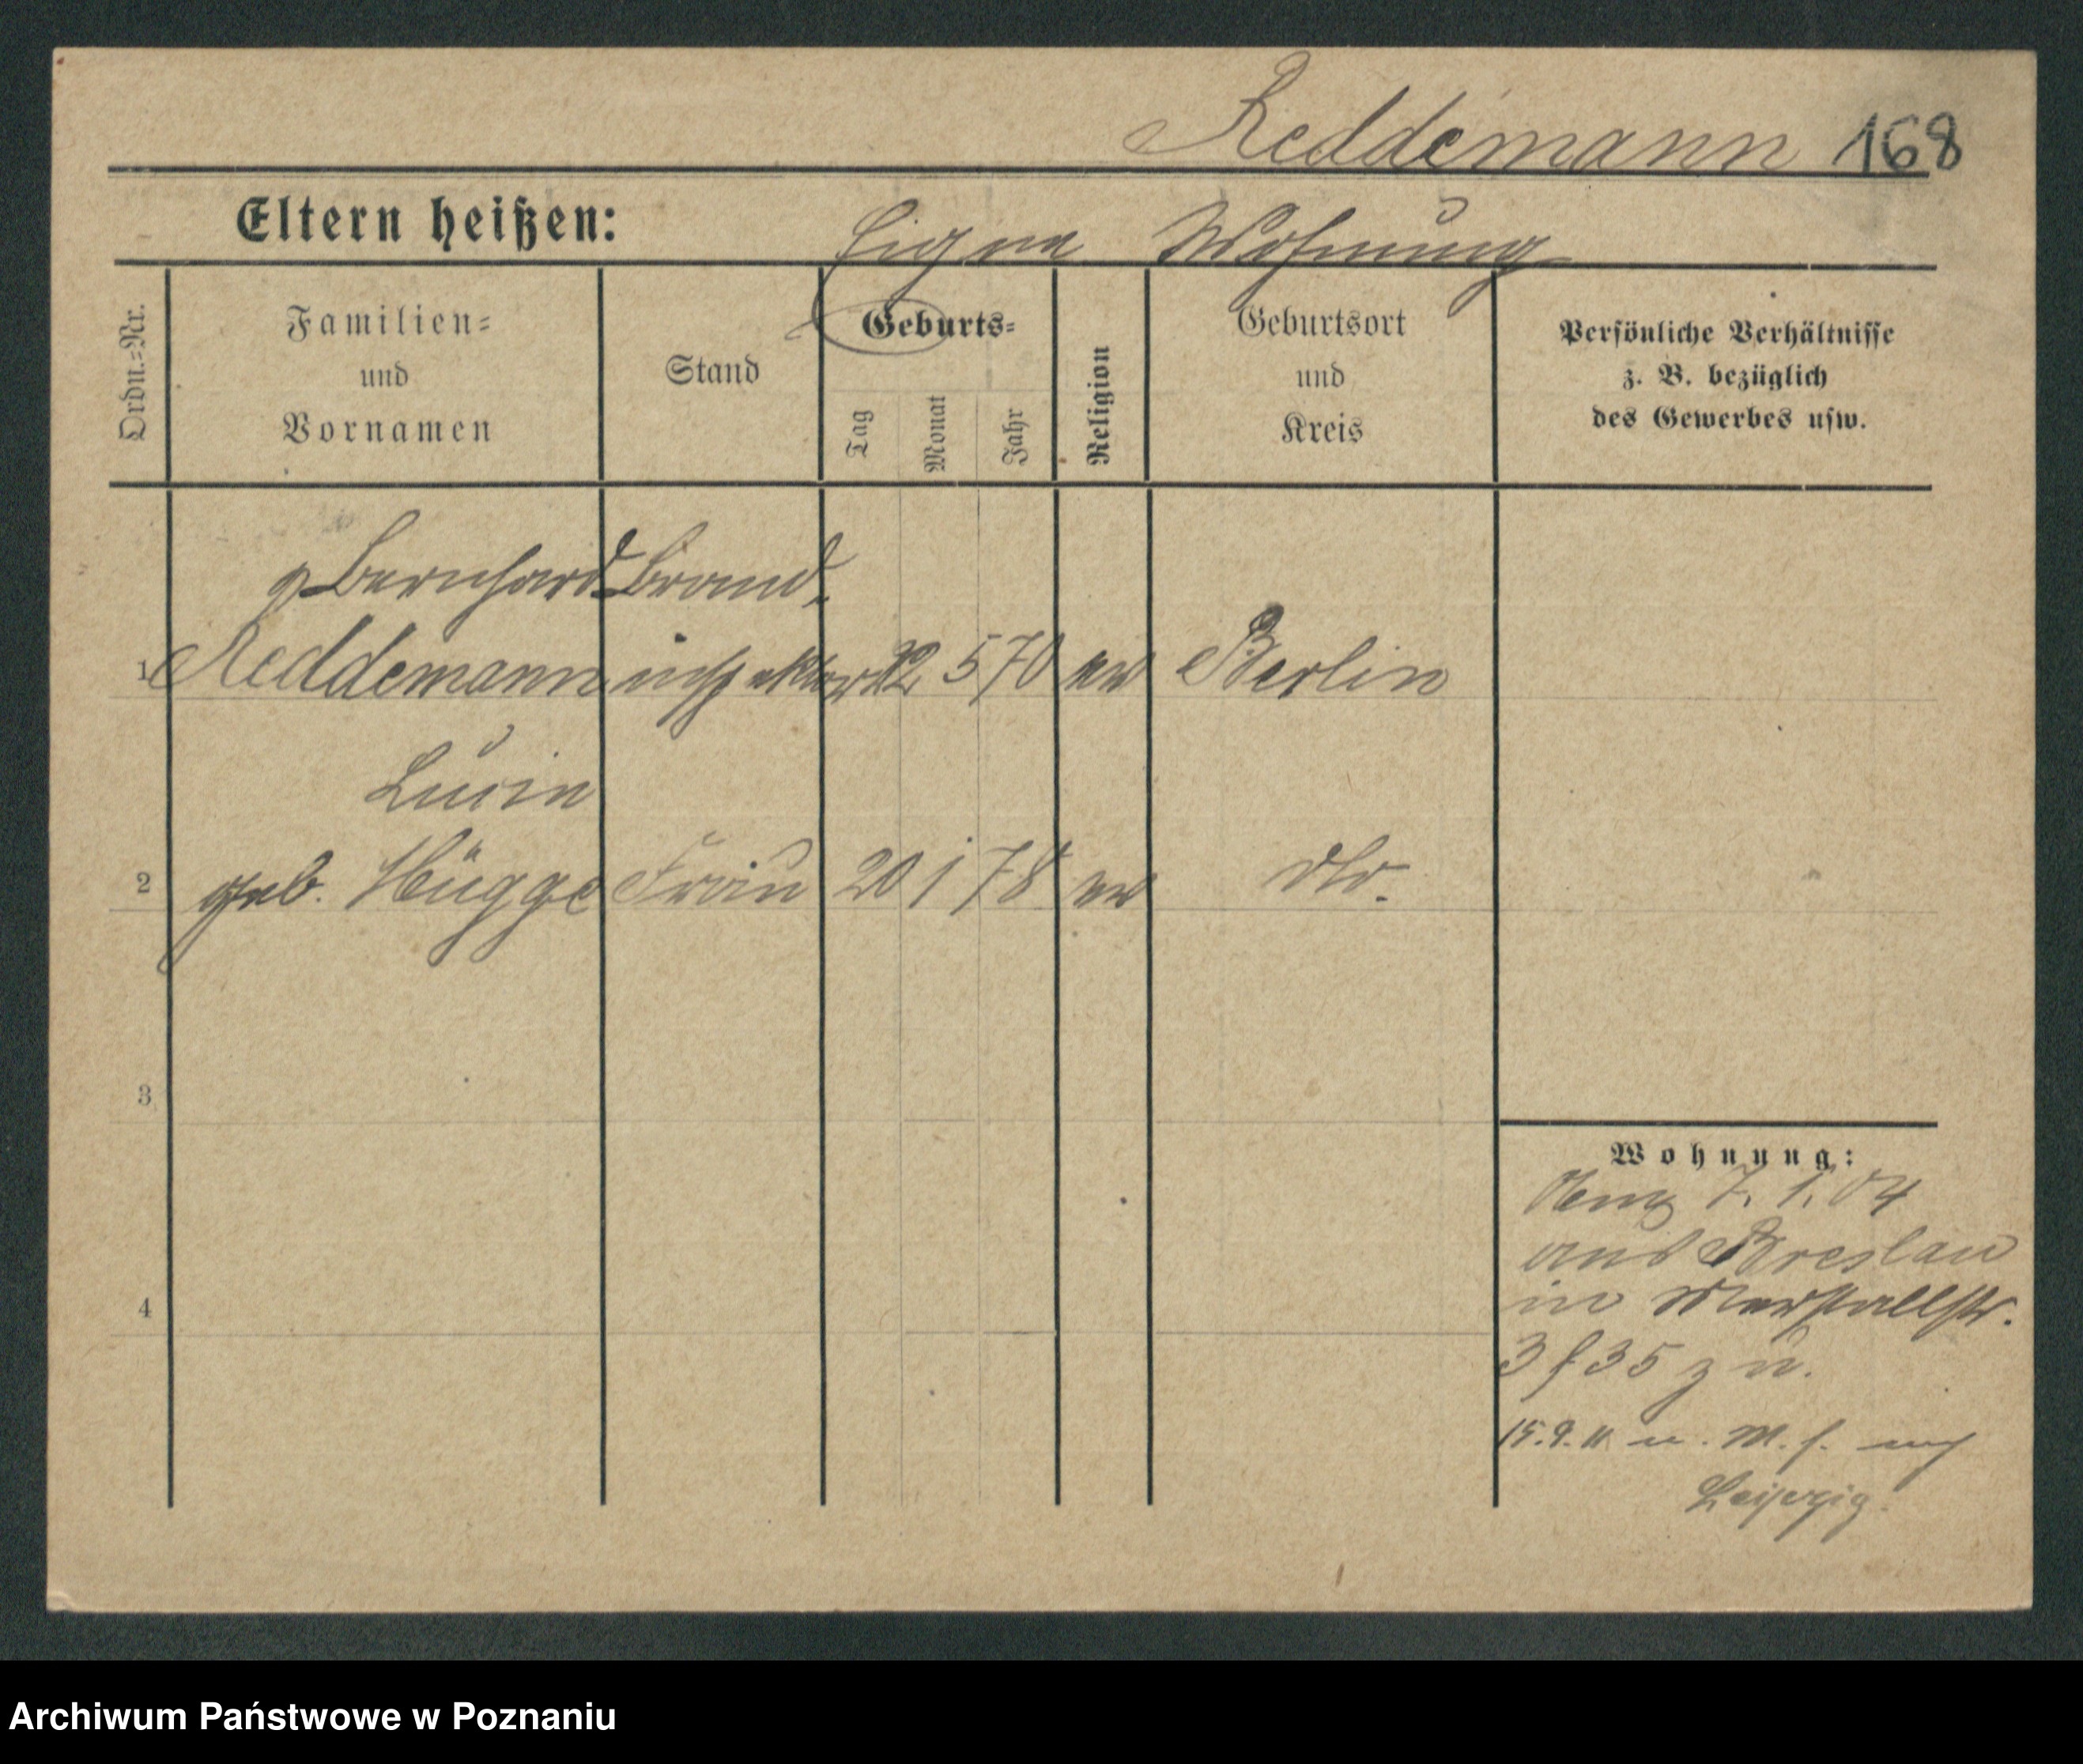 Reddemann 168
Eltern heißen:
Eigene Wohnung
Ordn.=Nr.
Familien=
und
Vornamen
Stand
Geburts=
Tag
Monat
Jahr
Religion
Geburtsort
und
Kreis
Persönliche Verhältnisse
z. B. bezüglich
des Gewerbes usw.
Bernhard Brand-
1 Reddemann inspektor 22 5 70 ev Berlin
2 geb. Hügge Frau 20 1 78 ev dto.
3
4
Wohnung:
7. 1. 04
aus Breslau
in Marstallstr.
3 f 35 z u.
15.9.11 u. M. f. nach
Leipzig.
Archiwum Państwowe w Poznaniu